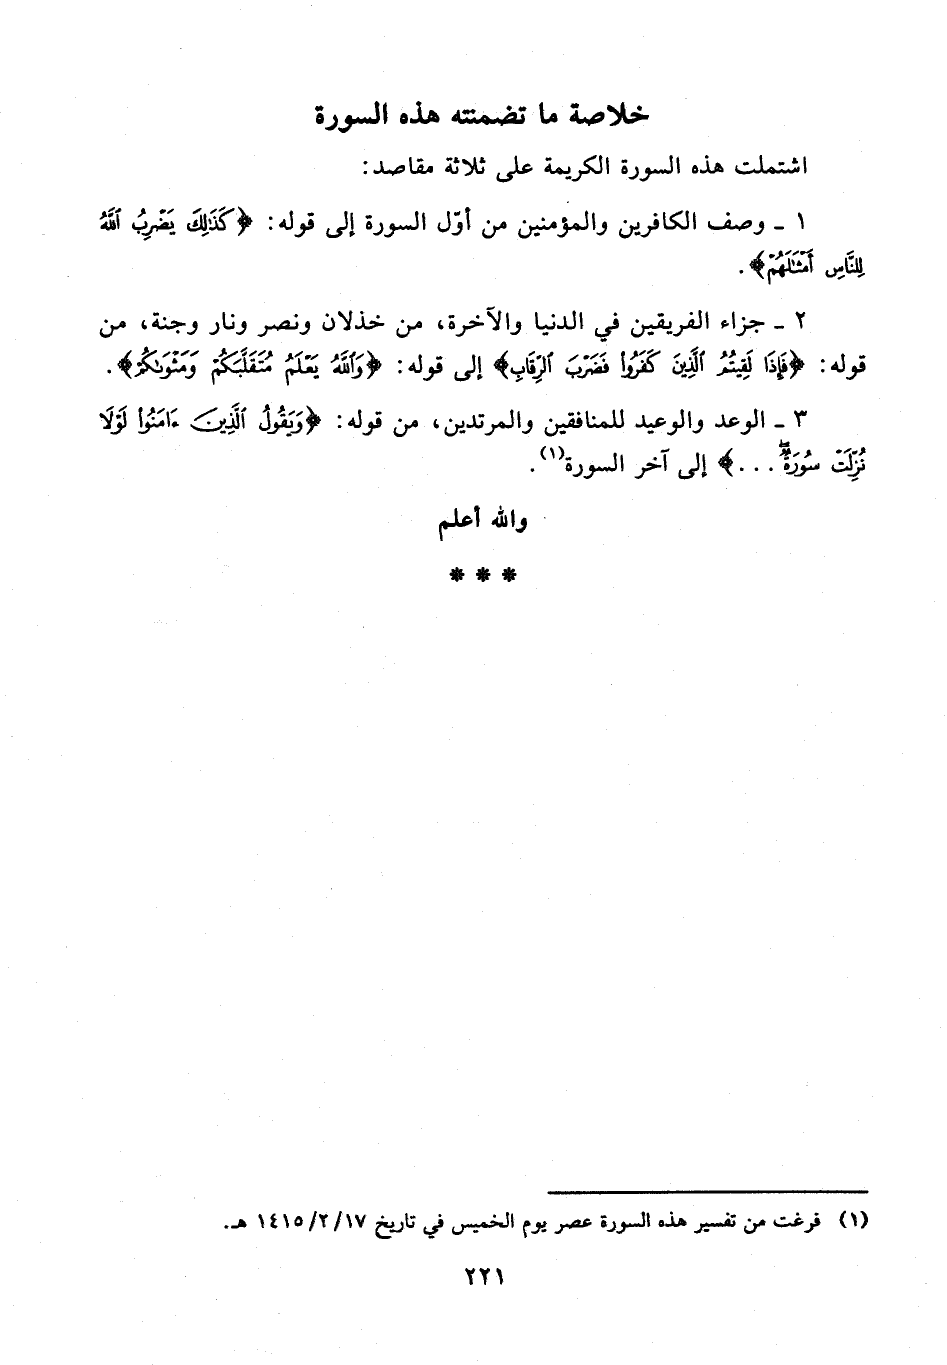 خلاصة ما تضمنته هذه السورة
اشتملت هذه السورة الكريمة على ثلاثة مقاصد:
١ ـ وصف الكافرين والمؤمنين من أوّل السورة إلى قوله: ﴿كَذَٰلِكَ يَضْرِبُ ٱللَّهُ
لِلنَّاسِ أَمْثَٰلَهُمْ﴾.
٢ ـ جزاء الفريقين في الدنيا والآخرة، من خذلان ونصر ونار وجنة، من
قوله: ﴿فَإِذَا لَقِيتُمُ ٱلَّذِينَ كَفَرُوا۟ فَضَرْبَ ٱلرِّقَابِ﴾ إلى قوله: ﴿وَٱللَّهُ يَعْلَمُ مُتَقَلَّبَكُمْ وَمَثْوَىٰكُمْ﴾.
٣ ـ الوعد والوعيد للمنافقين والمرتدين، من قوله: ﴿وَيَقُولُ ٱلَّذِينَ ءَامَنُوا۟ لَوْلَا
نُزِّلَتْ سُورَةٌ ۖ ...﴾ إلى آخر السورة(١).
والله أعلم
* * *
(١) فرغت من تفسير هذه السورة عصر يوم الخميس في تاريخ ١٤١٥/٢/١٧ هـ.
٢٢١